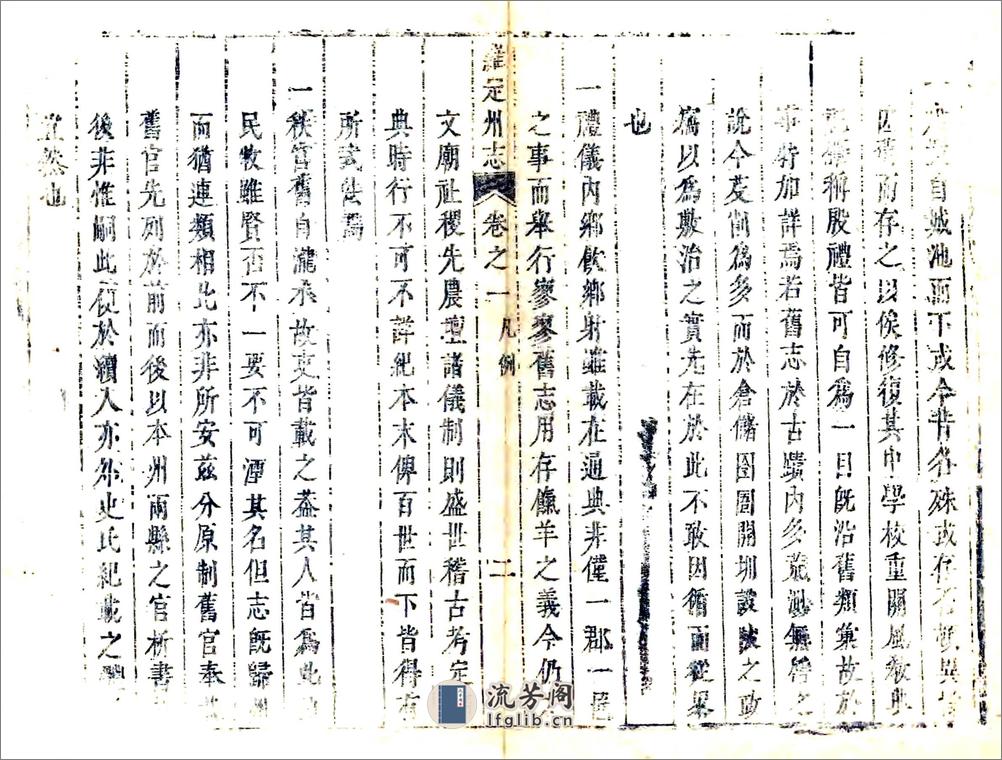 自城池而下或今昔名殊或存否頓異
舊而存之以俟修復其中學校重關風教典
稱殷禮皆可自為一目旣沿舊類彙故於
事特加詳焉若舊志於古蹟內多荒渺無稽之
說今芟削為多而於倉儲囹圄關圳設陂之政
寫以為敷治之實先在於此不敢因循而從畧
也
羅定州志 卷之一 凡例 二
一禮儀內鄉飲鄉射雖載在通典非僅一郡一邑
之事而舉行寥寥舊志用存餼羊之義今仍
文廟社稷先農壇諸儀制則盛世稽古考定
典時行不可不詳紀本末俾百世而下皆得有
所式法焉
一秩官舊自瀧水故吏皆載之葢其人皆為此
民牧雖賢否不一要不可湮其名但志旣歸
而猶連類相比亦非所安茲分原制舊官奉
舊官先列於前而後以本州兩縣之官析書
後非惟嗣此便於續入亦外史氏紀載之
宜然也
流芳阁
lfglib.cn